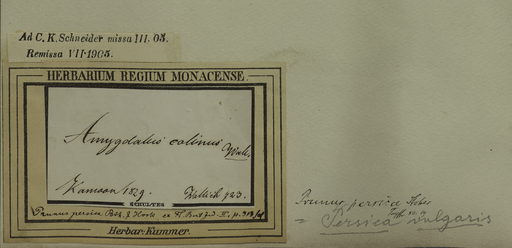 Ad C. K. Schneider missa III. 05.
Remissa VII 1905.
HERBARIUM REGIUM MONACENSE.
Amygdalus collinus Wall.
Kamaon 1829. Wallich 723.
SCHULTES
Prunus persica B&H. J Hook
Herbar. Kummer.
Prunus persica
= Persica vulgaris